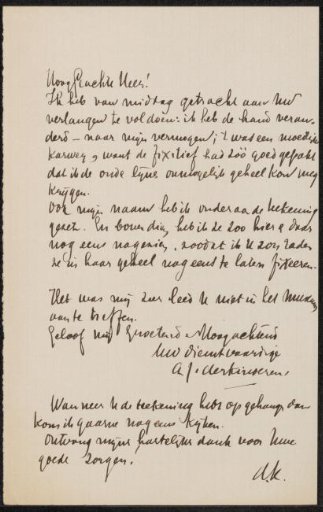 Hoog Geachte Heer!
Ik heb van middag getracht aan Uw
verlangen te voldoen: ik heb de hand veran-
derd – naar mijn vermogen; 't was een moeilijk
karweg, want de fixatief had zóó goed gepakt
dat ik de oude lijne onmogelijk geheel kon weg
krijgen.
Ook mijn naam heb ik onder aan de teekening
gezet. En bovendien heb ik ze zoo hier & daar
nog eens nagezien, zoodat ik U zou raden
ze in haar geheel nog eens te laten fixeeren.
Het was mij zeer leed U niet in het Museum
aan te treffen.
Geloof mij groetend Hoogachtend
Uw dienstvaardige
A J Derkinderen.
Wanneer U de teekening hebt opgehangen dan
kom ik gaarne nog eens kijken.
Ontvang mijn hartelijke dank voor Uwe
goede zorgen,
d.k.